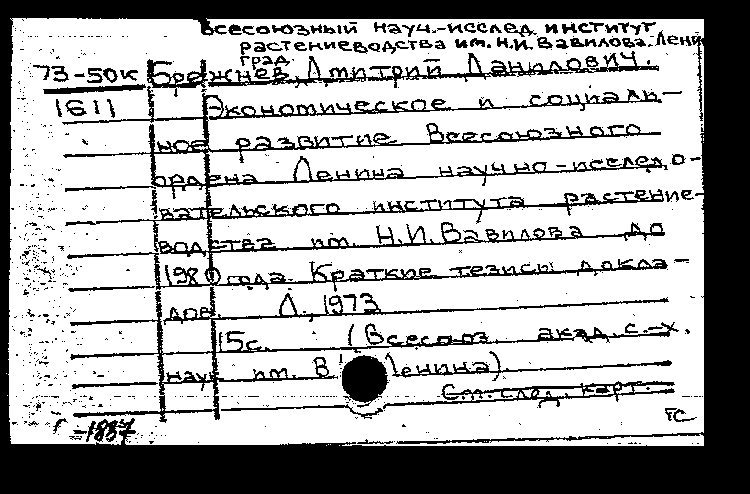 Всесоюзный науч.-исслед. институт
растениеводства им. Н.И. Вавилова. Лени
град.
73-50к Брежнев, Дмитрий Данилович.
1611 Экономическое и социаль-
ное развитие Всесоюзного
ордена Ленина научно-исследо-
вательского института растение-
водства им. Н.И. Вавилова до
1980 года. Краткие тезисы докла-
дов. Л., 1973
15с. (Всесоюз. акад. с.-х.
наук им. В Ленина).
См. след. карт.
ТС
-1887